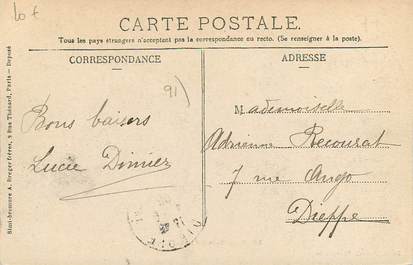 10 f
CARTE POSTALE.
Tous les pays étrangers n'acceptent pas la correspondance au recto. (Se renseigner à la poste).
CORRESPONDANCE
ADRESSE
91
Simi-bromure A. Breger frères, 9 Rue Thénard, Paris — Déposé
Bons baisers
Lucie Dimier
Mademoiselle
Adrienne Recourat
7 rue Ango
Dieppe